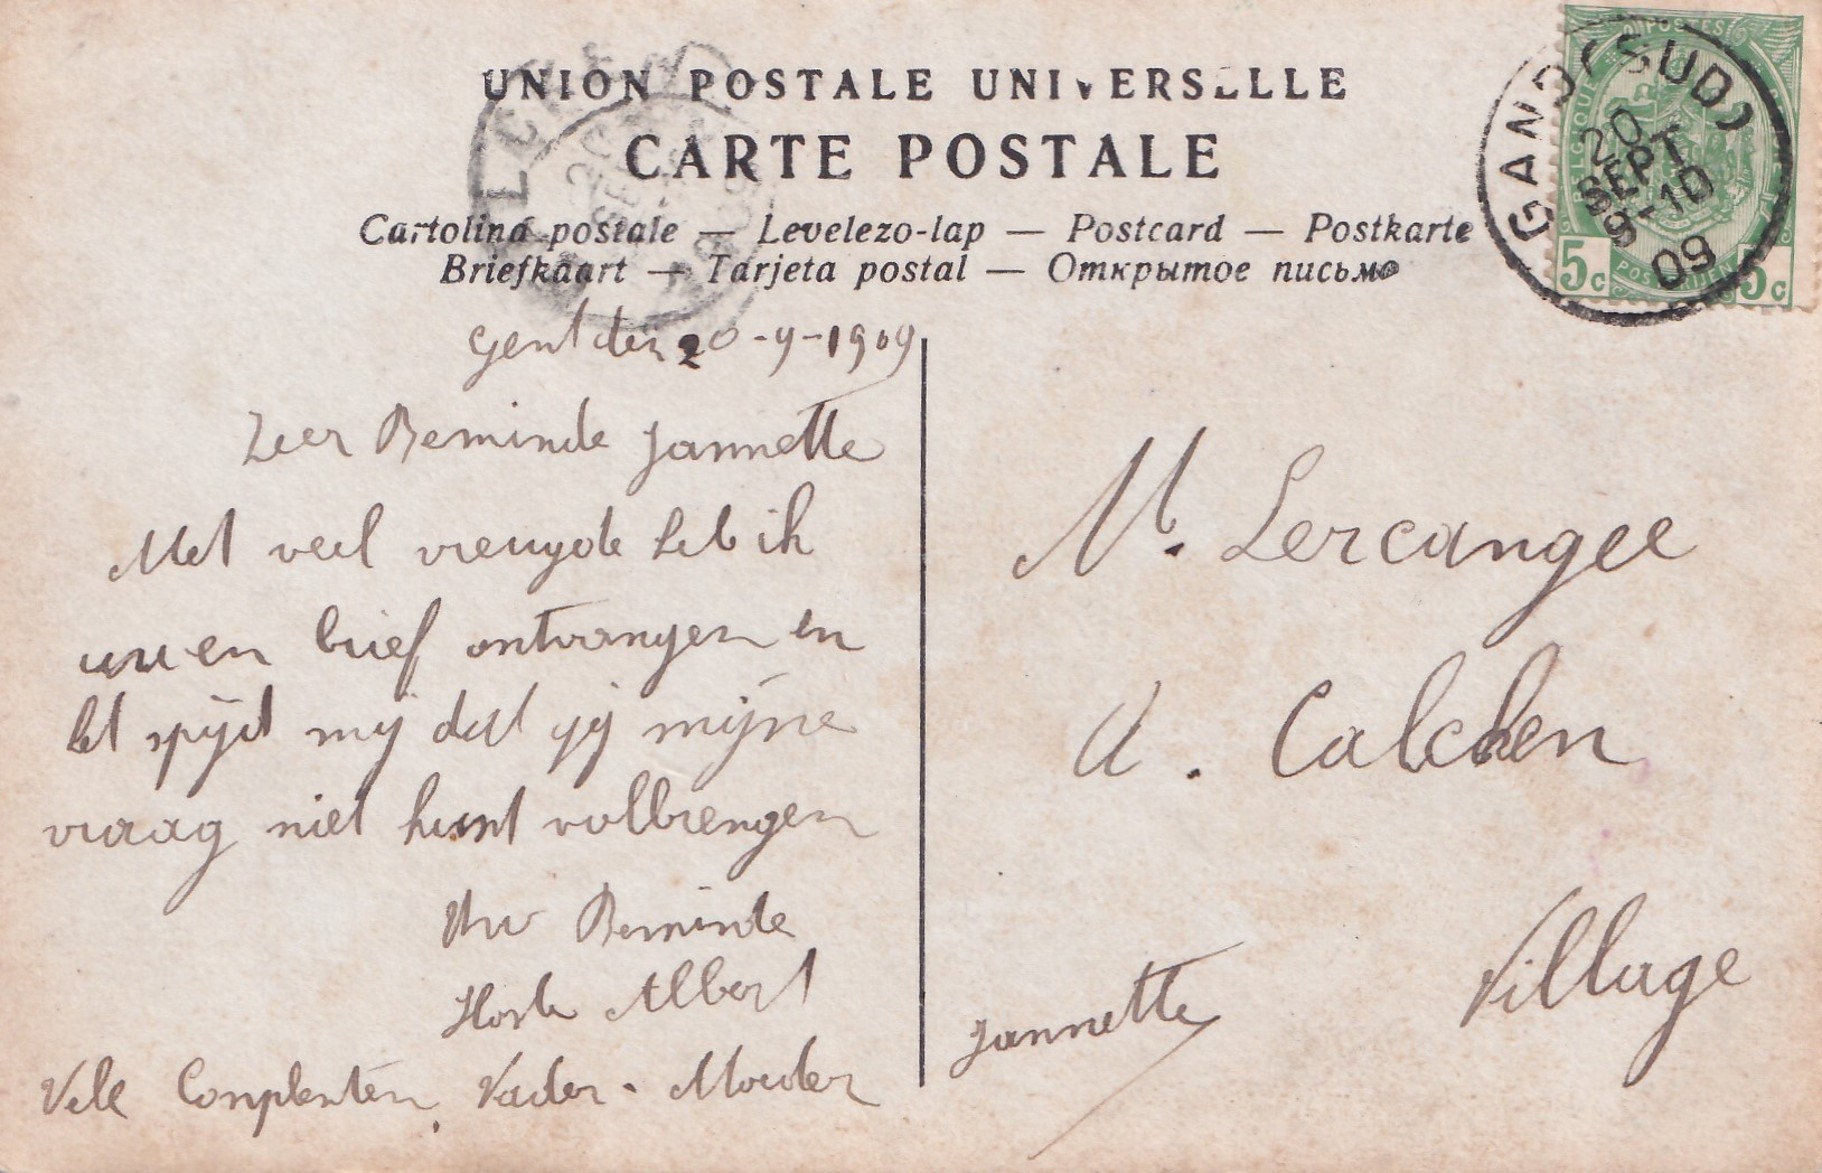 UNION POSTALE UNIVERSELLE
CARTE POSTALE
Cartolina postale — Levelezo-lap — Postcard — Postkarte
Briefkaart — Tarjeta postal — Открытое письмо
GAND (SUD)
20
SEPT
9-10
09
BELGIQUE
POSTES
POSTERIJEN
5c 5c
Gent den 20-9-1909
Zeer Beminde Jannette
Met veel vreugde heb ik
uwen brief ontvangen en
het spijd mij dat gij mijne
vraag niet kunt volbrengen
Uw Beminde
Albert
Vele Complenten Vader. Moeder
M. Lercangee
A. Calcken
Village
Jannette